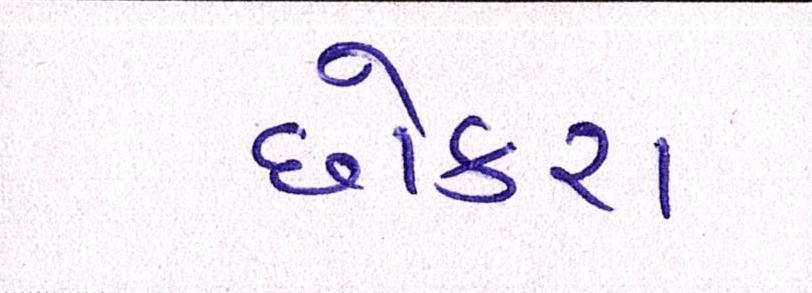 છોકરા